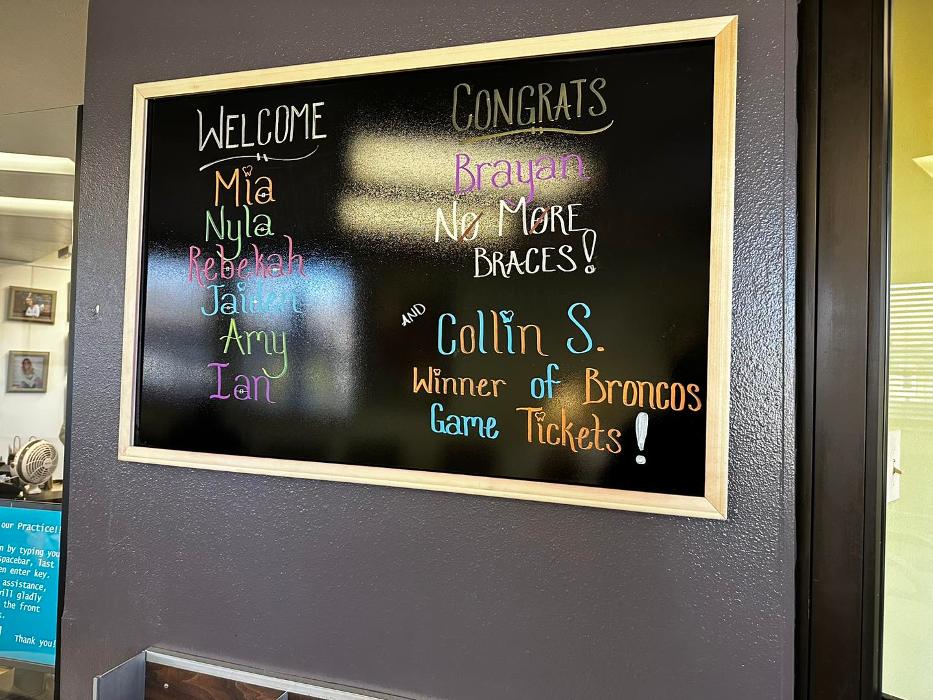 WELCOME
Mia
Nyla
Rebekah
Jaiden
Amy
Ian
CONGRATS
Brayan
No MORE
BRACES!
AND
Collin S.
Winner of Broncos
Game Tickets!
our Practice!!
by typing you
spacebar, last
enter key.
assistance,
gladly
the front
Thank you!